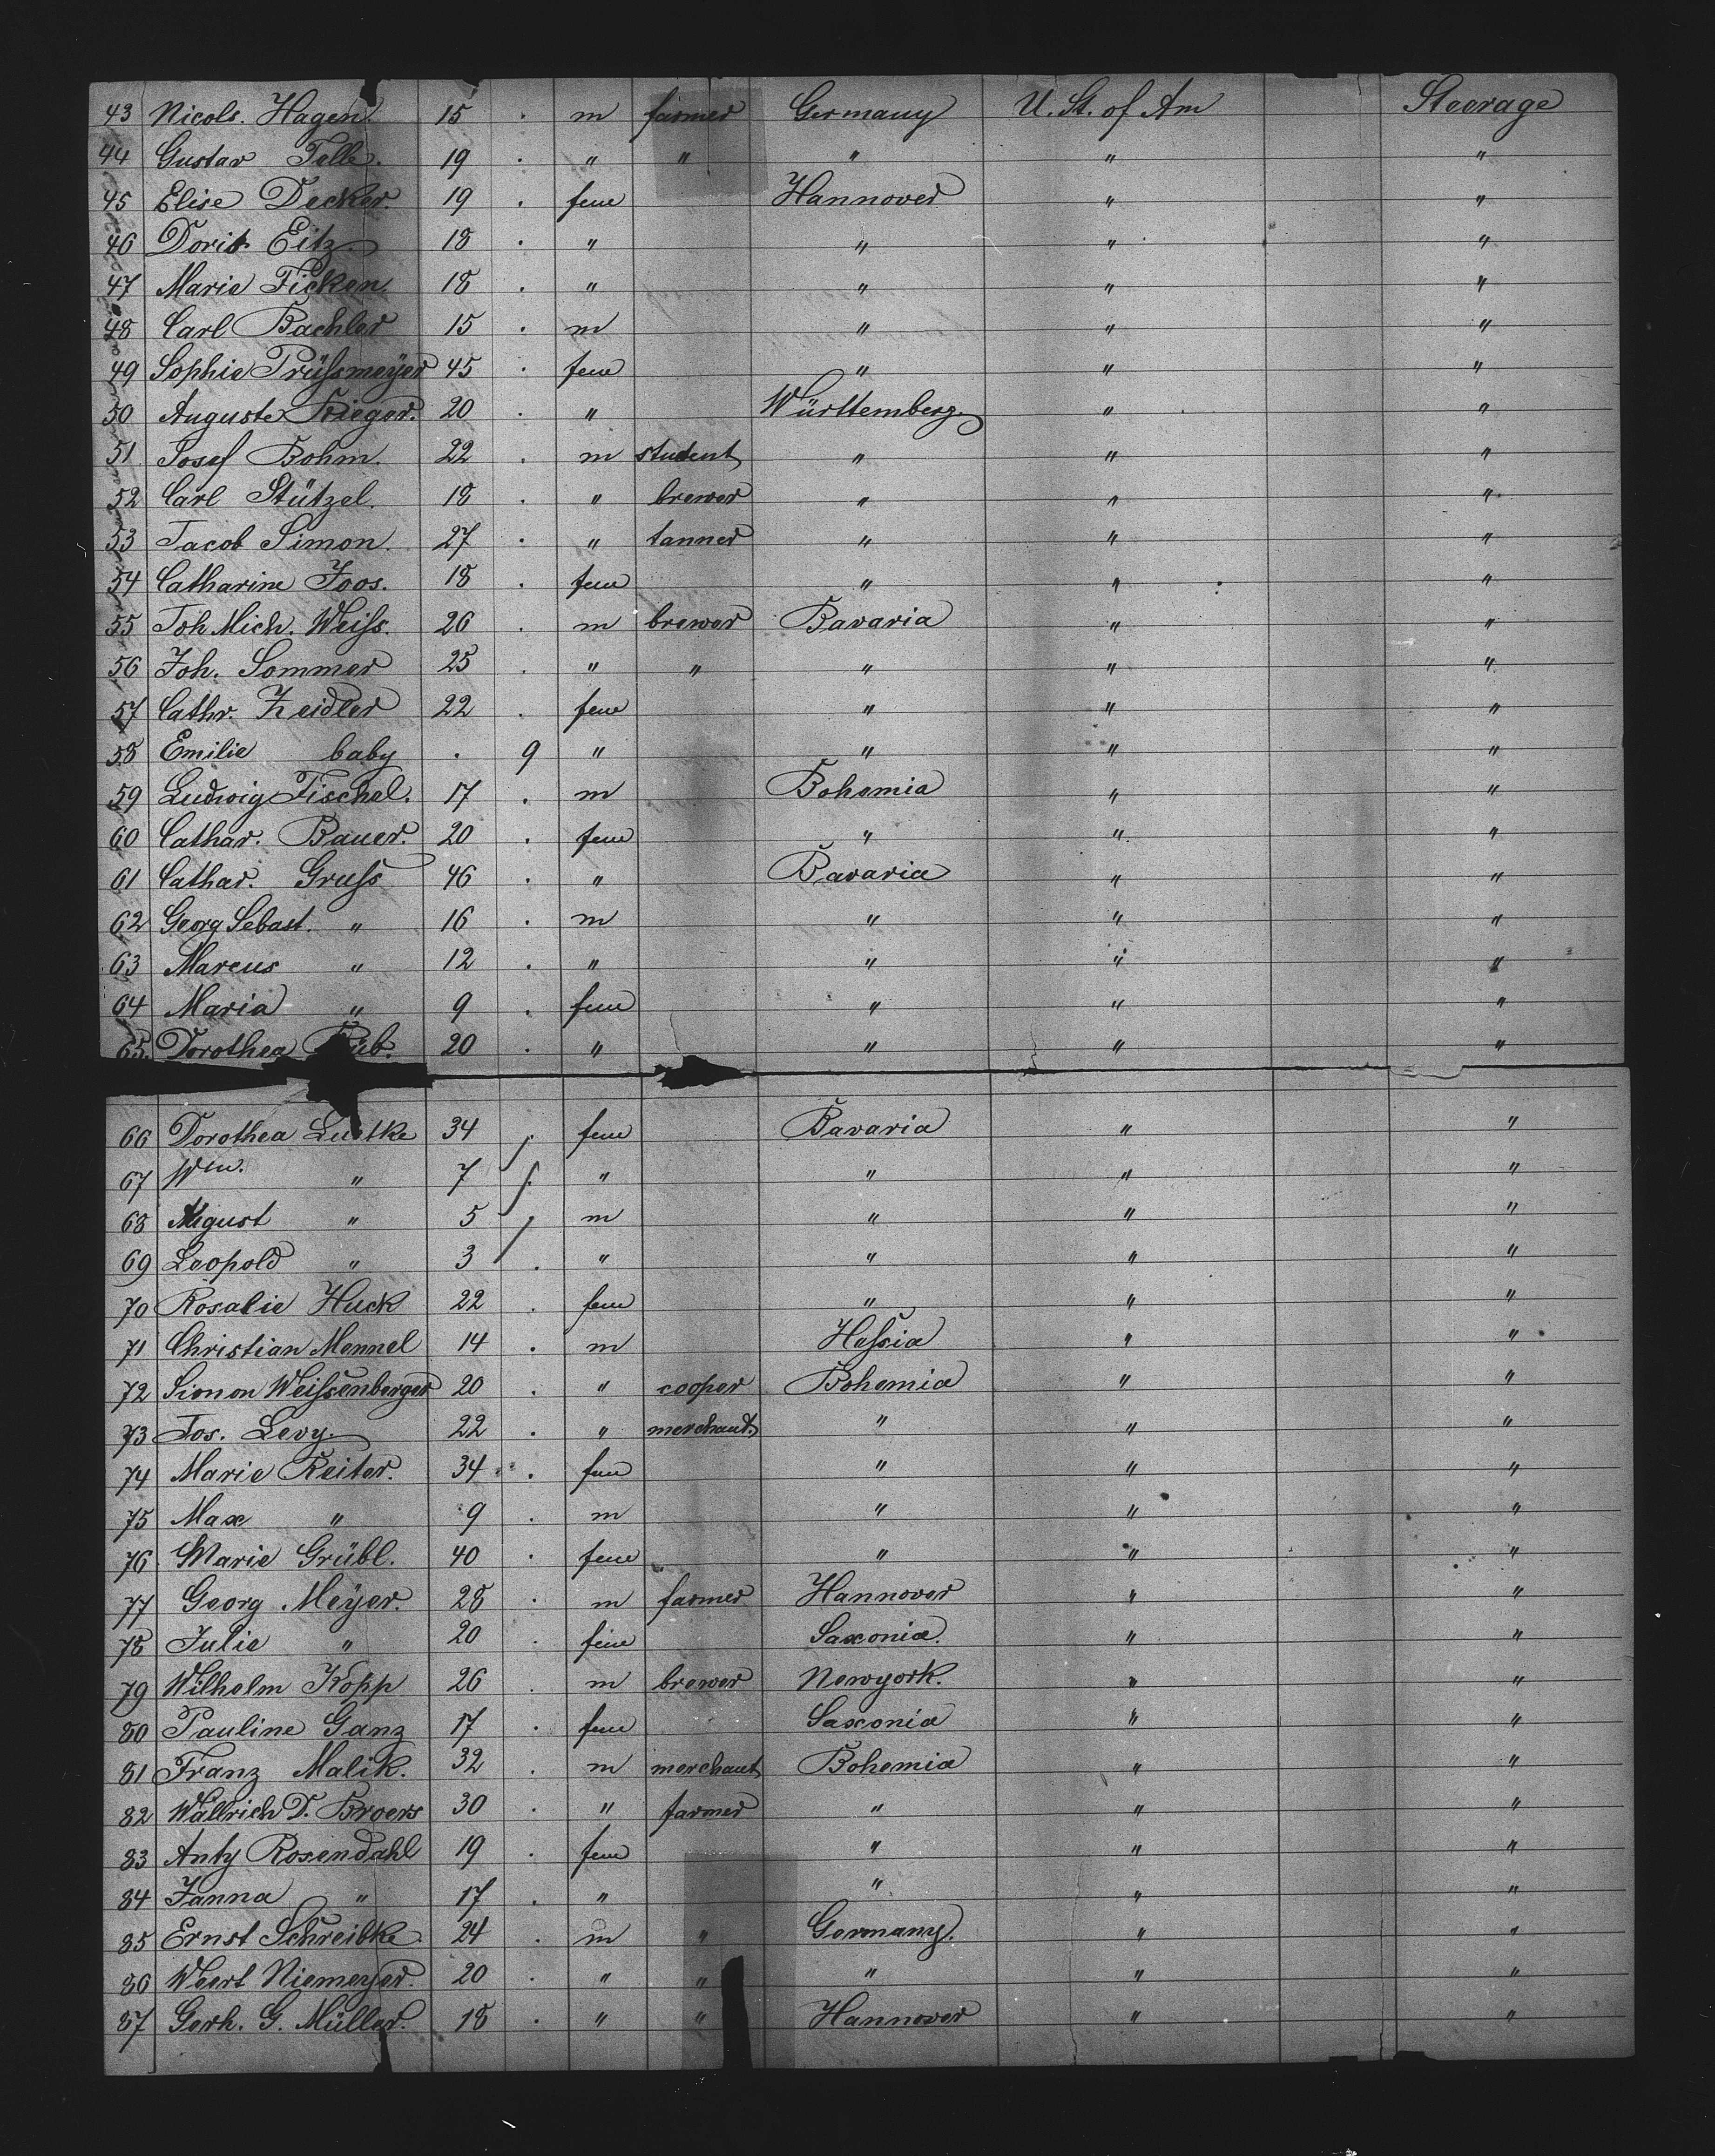 43 Nicols. Hagen 15 . m farmer Germany U. St. of Am Steerage
44 Gustav Telle. 19 . " " " " "
45 Elise Decker. 19 . fem Hannover " "
46 Doris Eitz. 18 . " " " "
47 Marie Ficken 18 . " " " "
48 Carl Bachler 15 . m " " "
49 Sophie Prüssmeÿer 45 . fem " " "
50 Auguste Krieger. 20 . " Württemberg. " "
51 Josef Bohm. 22 . m student " " "
52 Carl Stützel. 18 . " brewer " " "
53 Jacob Simon. 27 . " tanner " " "
54 Catharine Joos. 18 . fem " " "
55 Joh. Mich. Weiss. 26 . m brewer Bavaria " "
56 Joh. Sommer 25 . " " " " "
57 Cathr. Zeidler 22 . fem " " "
58 Emilie baby . 9 " " " "
59 Ludwig Fischel. 17 . m Bohemia " "
60 Cathar. Bauer. 20 . fem " " "
61 Cathar. Gruss 46 . " Bavaria " "
62 Georg Sebast. " 16 . m " " "
63 Marcus " 12 . " " " "
64 Maria " 9 . fem " " "
65. Dorothea 20 . " " " "
66 Dorothea Luetke 34 . fem Bavaria " "
67 Wm. " 7 . " " " "
68 August " 5 . m " " "
69 Leopold " 3 . " " " "
70 Rosalie Huck 22 . fem " " "
71 Christian Mennel 14 . m Hessia " "
72 Simon Weissenberger 20 . " cooper Bohemia " "
73 Jos. Levy. 22 . " merchant. " " "
74 Marie Reiter. 34 . fem " " "
75 Max " 9 . m " " "
76 Marie Grübl. 40 . fem " " "
77 Georg Meÿer. 28 . m farmer Hannover " "
78 Julie " 20 . fem Saxonia. " "
79 Wilhelm Kopp 26 . m brewer Newyork. " "
80 Pauline Ganz 17 . fem Saxonia " "
81 Franz Malik. 32 . m merchant Bohemia " "
82 Wallrich D. Broers 30 . " farmer " " "
83 Anty Rosendahl 19 . fem " " "
84 Janna " 17 . " " " "
85 Ernst Schreibke 24 . m " Germany. " "
86 Weert Niemeyer. 20 . " " " " "
87 Gerh. G. Müller. 18 . " " Hannover " "